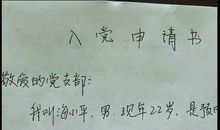 入党申请书
敬爱的党支部:
我叫海小平,男,现年22岁,是预